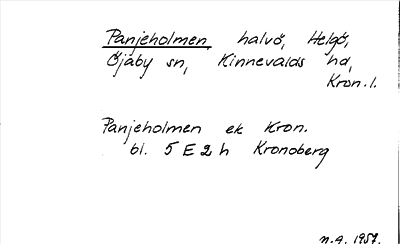 Panjeholmen, halvö, Helgö,
Öjaby sn, Kinnevalds hd,
Kron. l.
Panjeholmen ek Kron.
bl. 5 E 2 h Kronoberg
n.g. 1957.